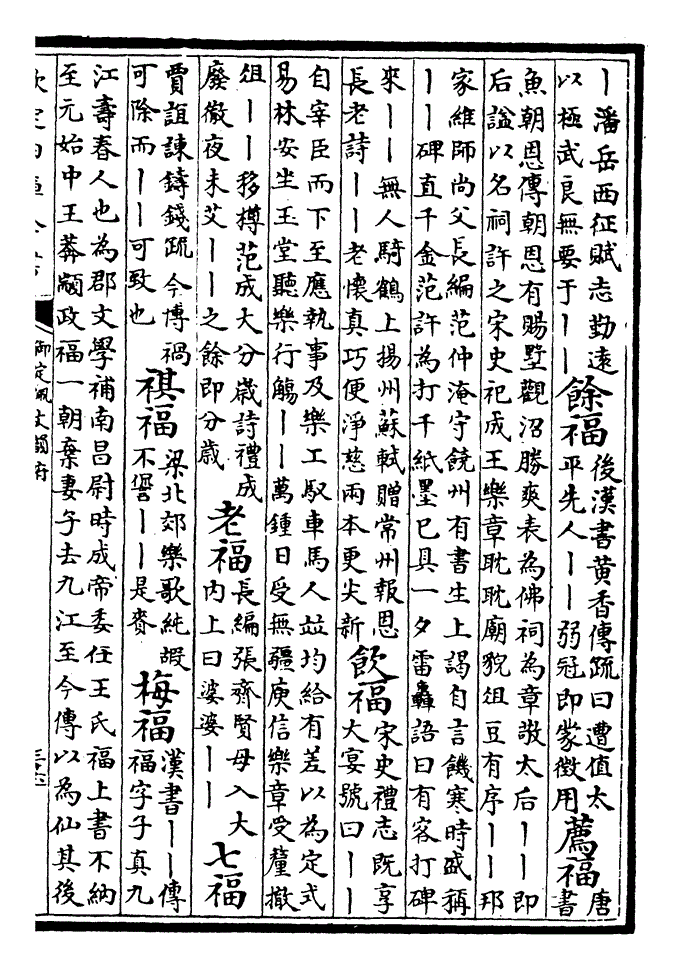 ｜潘岳西征賦志勤遠
以極武良無要于｜｜
餘福
後漢書黄香傳疏曰遭值太
平先人｜｜弱冠即蒙徵用
薦福
唐
書
魚朝恩傳朝恩有賜墅觀沼勝爽表為佛祠為章敬太后｜｜即
后諡以名祠許之宋史祀成王樂章耽耽廟貌俎豆有序｜｜邦
家維師尚父長編范仲淹守饒州有書生上謁自言饑寒時盛稱
｜｜碑直千金范許為打千紙墨已具一夕雷轟語曰有客打碑
來｜｜無人騎鶴上揚州蘇軾贈常州報恩
長老詩｜｜老懷真巧便淨慈兩本更尖新
飲福
宋史禮志既享
大宴號曰｜｜
自宰臣而下至應執事及樂工馭車馬人竝均給有差以為定式
易林安坐玉堂聽樂行觴｜｜萬鍾日受無疆庾信樂章受釐撤
俎｜｜移樽范成大分歳詩禮成
廢徹夜未艾｜｜之餘即分歳
老福
長編張齊賢母入大
内上曰婆婆｜｜
七福
賈誼諫鑄錢疏今博禍
可除而｜｜可致也
祺福
梁北郊樂歌純嘏
不諐｜｜是賚
梅福
漢書｜｜傳
福字子真九
江壽春人也為郡文學補南昌尉時成帝委任王氏福上書不納
至元始中王莽顓政福一朝棄妻子去九江至今傳以為仙其後
欽定四庫全書
御定佩文韻府